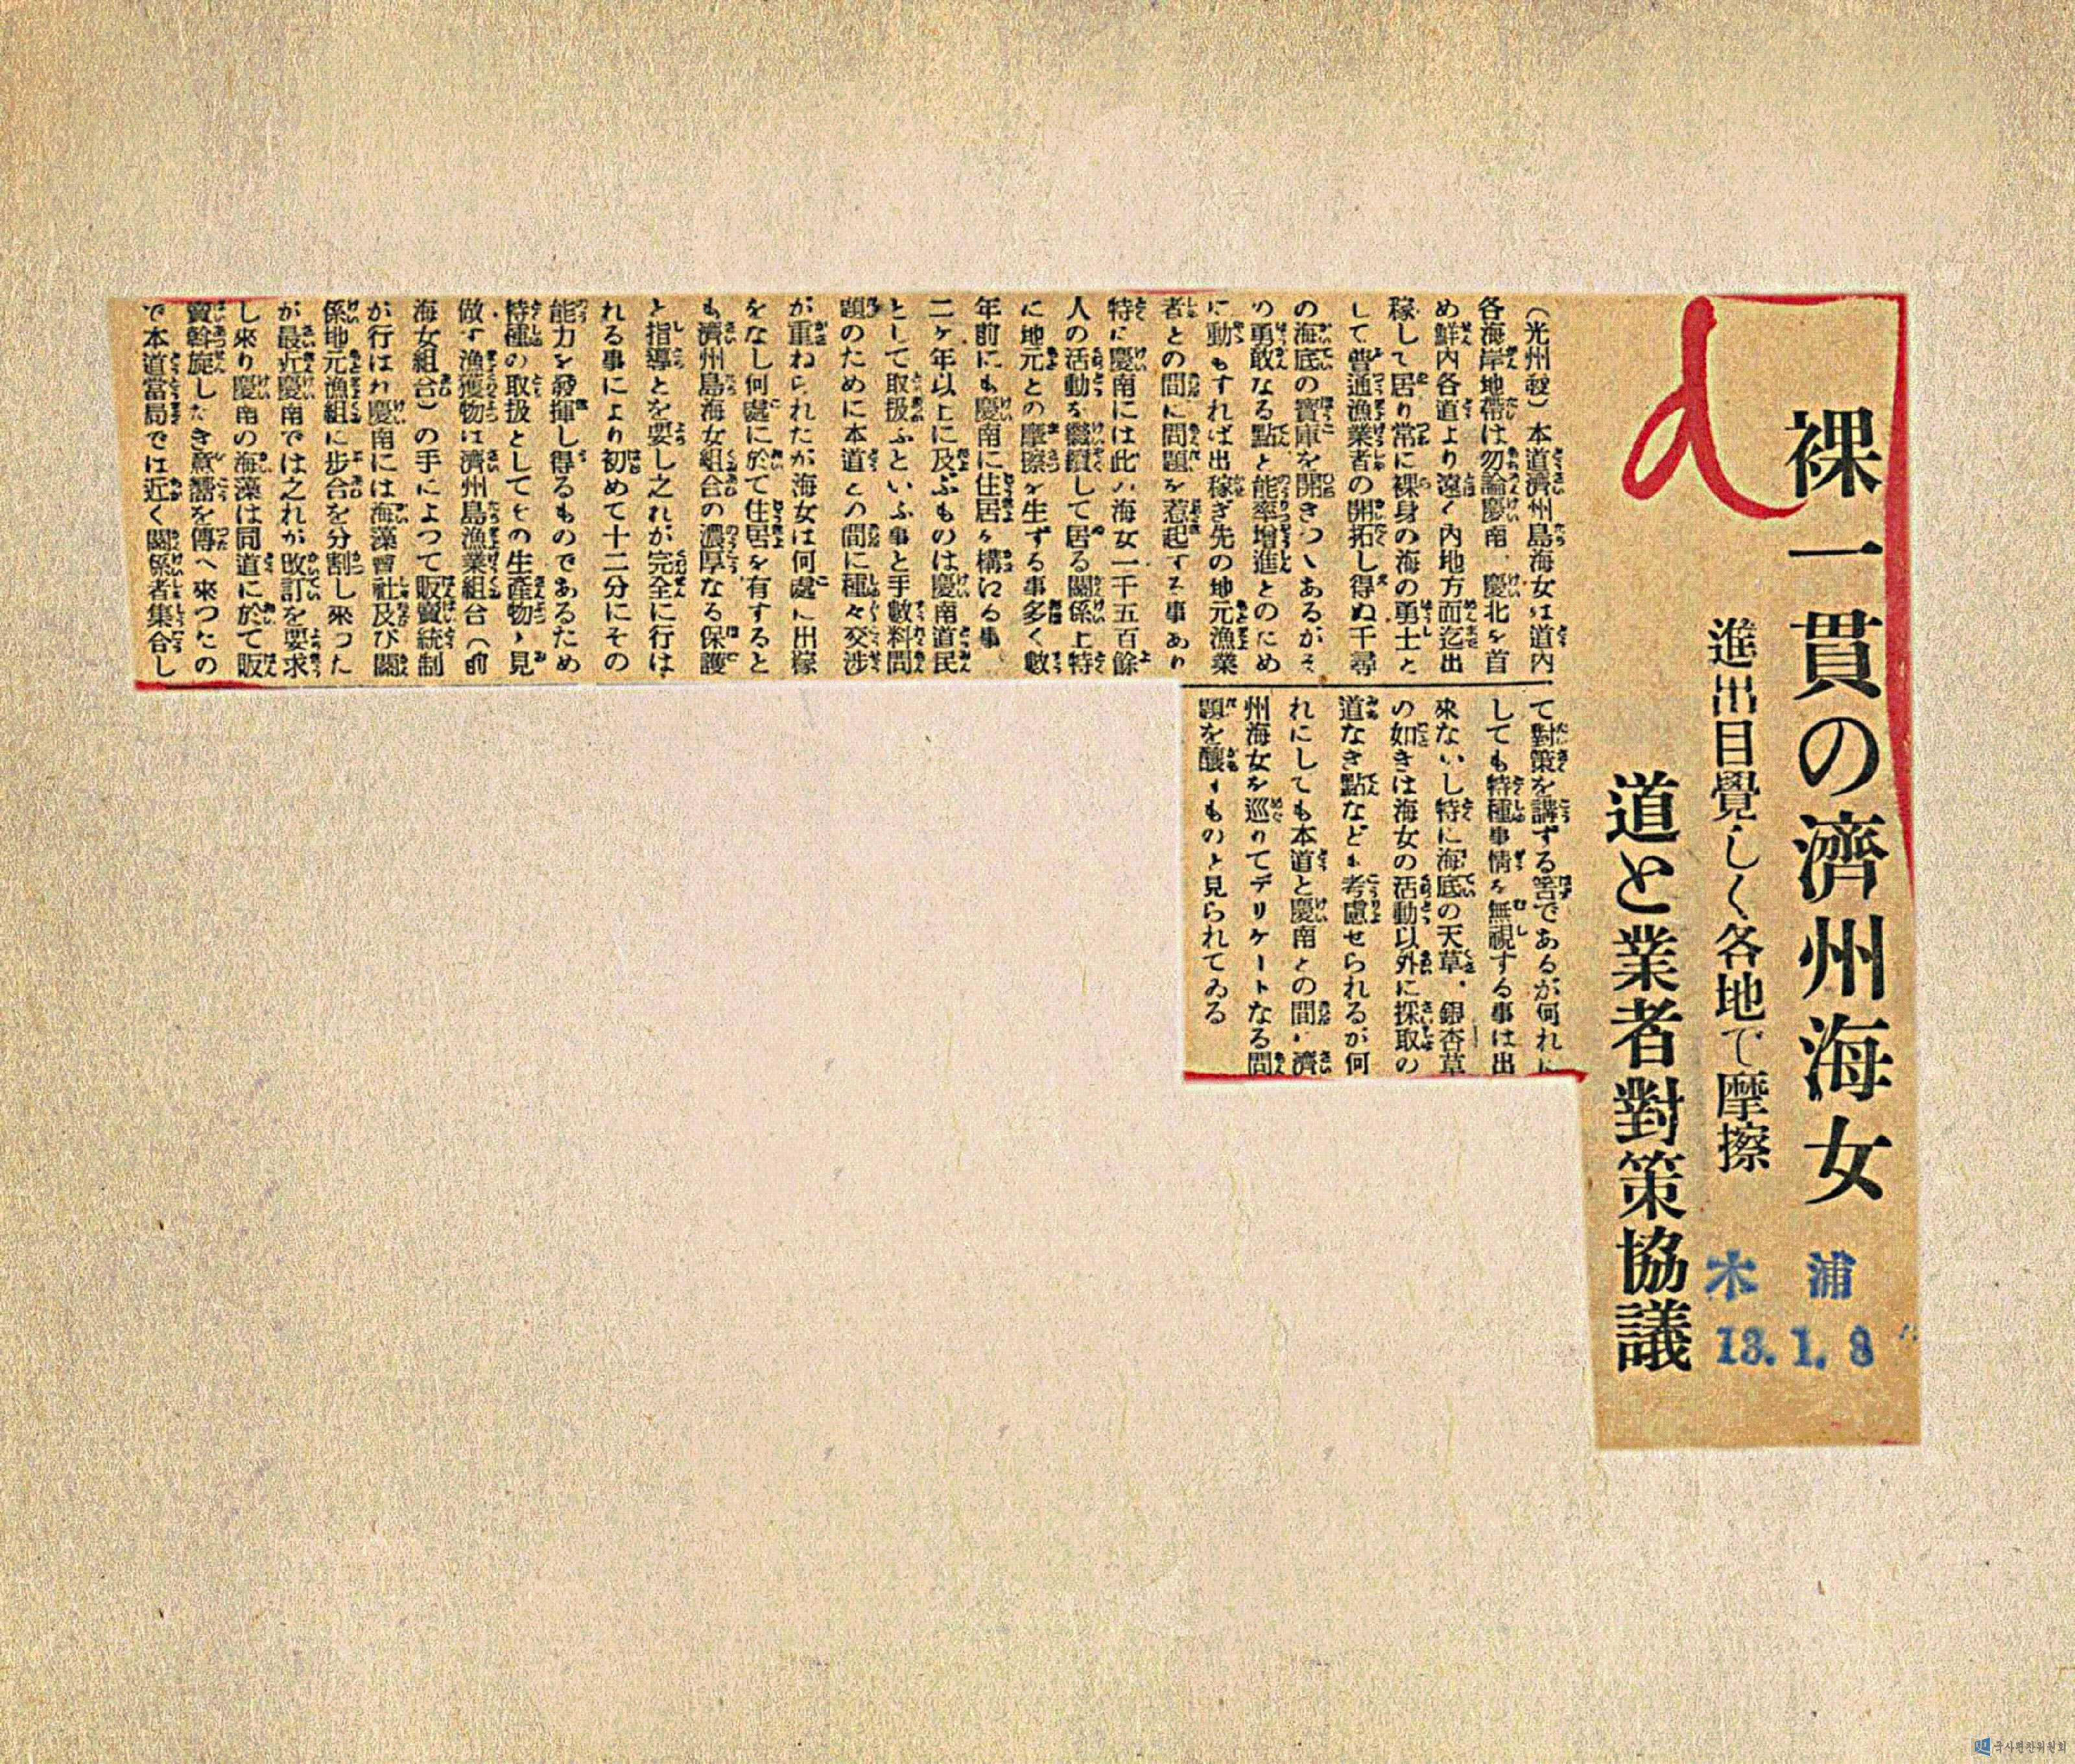 裸一貫の濟州海女
進出目覺しく各地で摩擦
道と業者對策協議
木浦
13.1.8
(光州發)本道濟州島海女は道內
各海岸地帶は勿論慶南、慶北を首
め鮮內各道より遠く內地方面迄出
稼して居り常に裸身の海の勇士と
して普通漁業者の開拓し得ぬ千尋
の海底の寶庫を開きつゝあるがそ
の勇敢なる點と能率增進とのため
に動もすれば出稼ぎ先の地元漁業
者との間に問題を惹起する事あり
特に慶南には此の海女一千五百餘
人の活動を繼續して居る關係上特
に地元との摩擦を生ずる事多く數
年前にも慶南に住居を構ねる事
二ケ年以上に及ぶものは慶南道民
として取扱ふといふ事と手數料問
題のために本道との間に種々交涉
が重ねられたが海女は何處に出稼
をなし何處に於て住居を有すると
も濟州島海女組合の濃厚なる保護
と指導とを要し之れが完全に行は
れる事により初めて十二分にその
能力を發揮し得るものであるため
特種の取扱としてその生產物と見
做す漁獲物は濟州島漁業組合(前
海女組合)の手によつて販賣統制
が行はれ慶南には海藻會社及び關
係地元漁組に步合を分割し來つた
が最近慶南では之れが改訂を要求
し來り慶南の海藻は同道に於て販
賣斡旋したき意嚮を傳へ來つたの
で本道當局では近く關係者集合し
て對策を講ずる筈であるが何れに
しても特種事情を無視する事は出
來ないし特に海底の天草、銀杏草
の如きは海女の活動以外に採取の
道なき點なども考慮せられるが何
れにしても本道と慶南との間に濟
州海女を巡りてデリケートなる問
題を釀すものと見られてゐる
국사편찬위원회